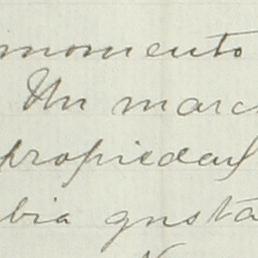 momento
Un marc
propiedad
bia gusta